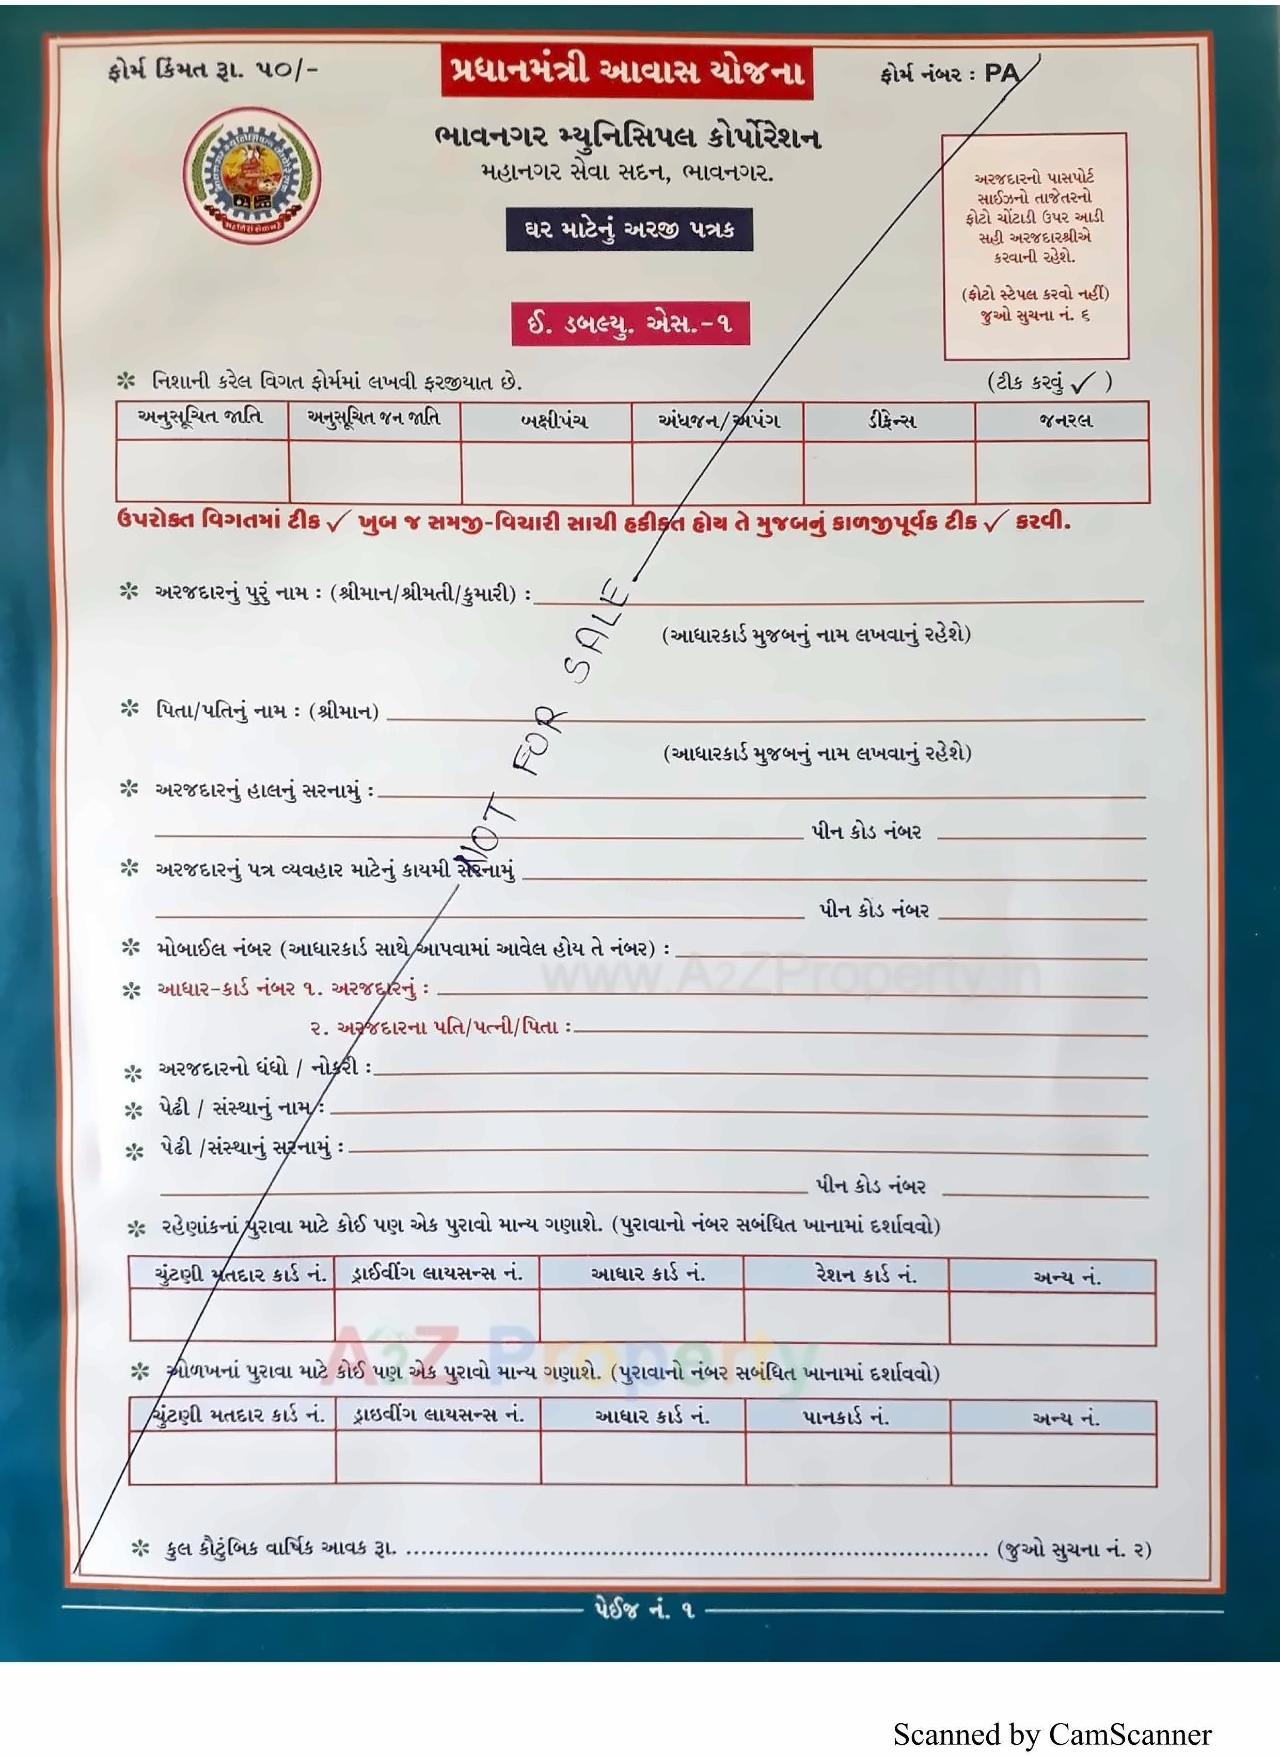 ફોર્મ કિંમત રૂા. ૫૦/-
પ્રધાનમંત્રી આવાસ યોજના
ફોર્મ નંબર : PA
ભાવનગર મ્યુનિસિપલ કોર્પોરેશન
મહાનગર સેવા સદન, ભાવનગર.
ઘર માટેનું અરજી પત્રક
ઈ. ડબલ્યુ. એસ.-૧
અરજદારનો પાસપોર્ટ
સાઈઝનો તાજેતરનો
ફોટો ચોંટાડી ઉપર આડી
સહી અરજદારશ્રીએ
કરવાની રહેશે.
(ફોટો સ્ટેપલ કરવો નહીં)
જુઓ સુચના નં. ૬
* નિશાની કરેલ વિગત ફોર્મમાં લખવી ફરજીયાત છે. (ટીક કરવું ✓ )
અનુસૂચિત જાતિ અનુસૂચિત જન જાતિ બક્ષીપંચ અંધજન/અપંગ ડીફેન્સ જનરલ
ઉપરોક્ત વિગતમાં ટીક ✓ ખુબ જ સમજી-વિચારી સાચી હકીકત હોય તે મુજબનું કાળજીપૂર્વક ટીક ✓ કરવી.
* અરજદારનું પુરું નામ : (શ્રીમાન/શ્રીમતી/કુમારી) :
(આધારકાર્ડ મુજબનું નામ લખવાનું રહેશે)
NOT FOR SALE
* પિતા/પતિનું નામ : (શ્રીમાન)
(આધારકાર્ડ મુજબનું નામ લખવાનું રહેશે)
* અરજદારનું હાલનું સરનામું :
પીન કોડ નંબર
* અરજદારનું પત્ર વ્યવહાર માટેનું કાયમી સરનામું
પીન કોડ નંબર
* મોબાઈલ નંબર (આધારકાર્ડ સાથે આપવામાં આવેલ હોય તે નંબર) :
www.A2ZProperty.in
* આધાર-કાર્ડ નંબર ૧. અરજદારનું :
૨. અરજદારના પતિ/પત્ની/પિતા :
* અરજદારનો ધંધો / નોકરી :
* પેઢી / સંસ્થાનું નામ :
* પેઢી /સંસ્થાનું સરનામું :
પીન કોડ નંબર
* રહેણાંકનાં પુરાવા માટે કોઈ પણ એક પુરાવો માન્ય ગણાશે. (પુરાવાનો નંબર સબંધિત ખાનામાં દર્શાવવો)
ચુંટણી મતદાર કાર્ડ નં. ડ્રાઈવીંગ લાયસન્સ નં. આધાર કાર્ડ નં. રેશન કાર્ડ નં. અન્ય નં.
A2Z Property
* ઓળખનાં પુરાવા માટે કોઈ પણ એક પુરાવો માન્ય ગણાશે. (પુરાવાનો નંબર સબંધિત ખાનામાં દર્શાવવો)
ચુંટણી મતદાર કાર્ડ નં. ડ્રાઇવીંગ લાયસન્સ નં. આધાર કાર્ડ નં. પાનકાર્ડ નં. અન્ય નં.
* કુલ કૌટુંબિક વાર્ષિક આવક રૂા. ........................ (જુઓ સુચના નં. ૨)
પેઈજ નં. ૧
Scanned by CamScanner